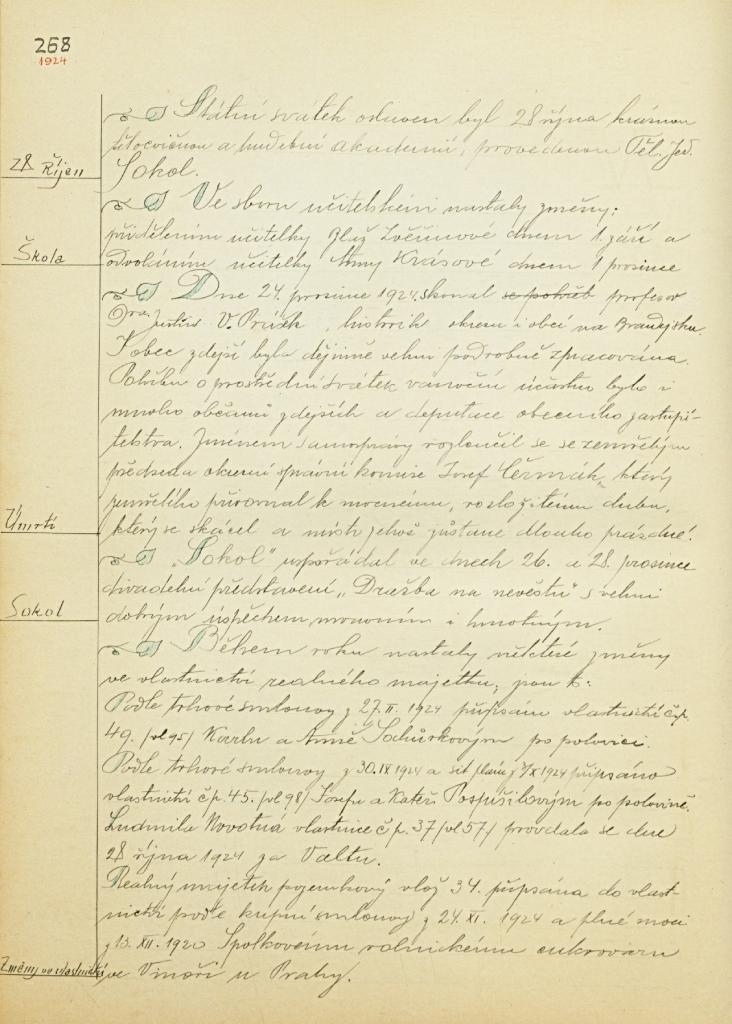 268
1924
Státní svátek osláven byl 28 října krásnou
tělocvičnou a hudební akademií, provedenou Těl. Jed.
28 Říjen
Sokol.
Ve sboru učitelském nastaly změny:
přidělením učitelky dnem 1. září a
Škola
odvoláním učitelky Anny Krásové dnem 1 prosince
Dne 24. prosince 1924 skonal se pohřeb profesor
Justin V. Prášek, historik okresu i obcí na Brandejsku.
I obec zdejší byla dějinně velmi podrobně zpracována.
Pohřbu o prostřední svátek vánoční účastno bylo i
mnoho občanů zdejších a deputace obecního zastupi-
telstva. Jménem samosprávy rozloučil se se zemřelým
předseda okresní správní komise Josef Čermák, který
zemřelého přirovnal k mocnému, rozložitému dubu,
Úmrtí
který se skácel a místo jehož zůstane dlouho prázdné!
„Sokol" uspořádal ve dnech 26. a 28. prosince
divadelní představení „Dražba na nevěstu" s velmi
Sokol
dobrým úspěchem morálním i hmotným.
Během roku nastaly některé změny
ve vlastnictví realného majetku, jsou to:
Podle trhové smlouvy z 27. II. 1924 připsáno vlastnictví čp.
49. /vl 95/ Karlu a Anně po polovici.
Podle trhové smlouvy z 30. IX 1924 a sit plánu z 7/X 1924 připsáno
vlastnictví č p. 45. /vl 98/ Josefu a Kateř. Pospíšilovým po polovině.
Ludmila Novotná vlastnice č p. 37 /vl 57/ provdala se dne
28 října 1924 za Valtu.
Realný majetek pozemkový vlož 34. připsána do vlast-
nictví podle kupní smlouvy z 24. XI. 1924 a plné moci
z 13. XII. 1920 Spolkovému rolnickému cukrovaru
Změny ve vlastnictví
ve Vinoři u Prahy.